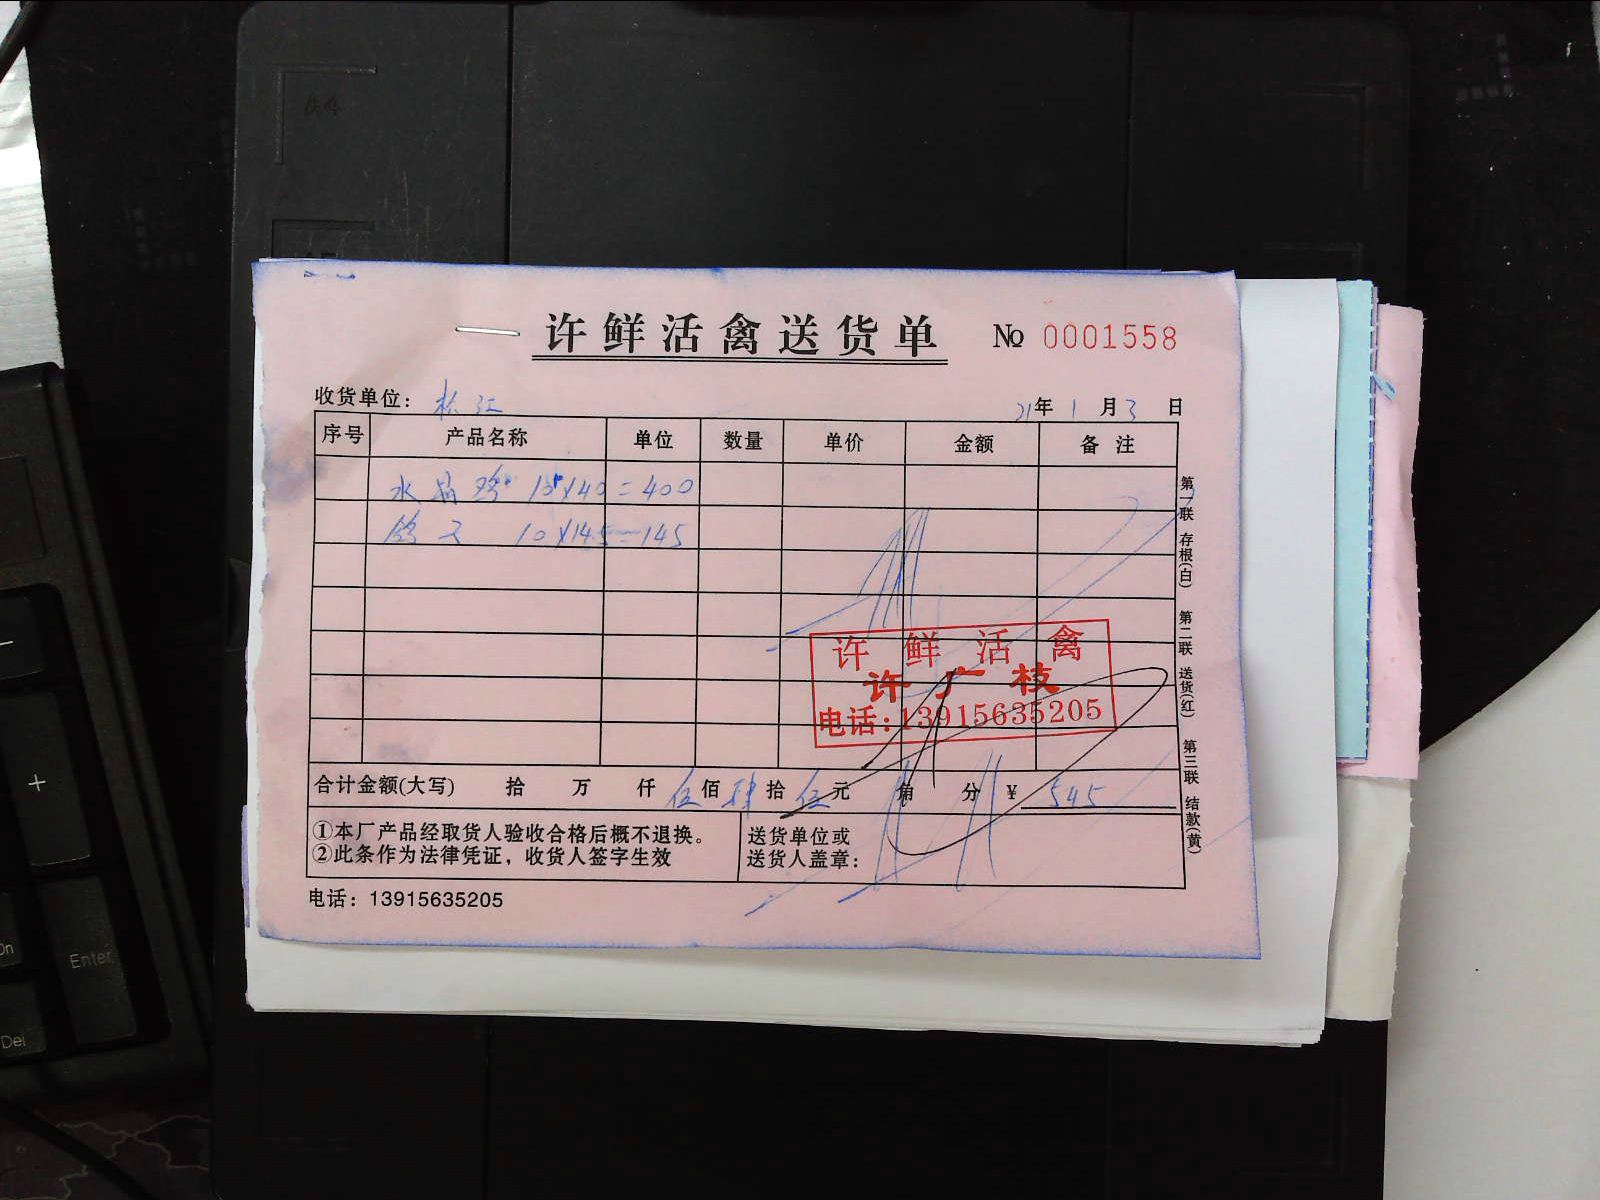 许鲜活禽送货单 № 0001558
收货单位: 松江 21年 1月 3日
序号 产品名称 单位 数量 单价 金额 备注
水晶 10×40=400
10×14.5=145
许鲜活禽
许广枝
电话:13915635205
合计金额(大写) 拾 万 仟 伍佰 肆拾 伍元 角 分 ¥ 545
①本厂产品经取货人验收合格后概不退换。
②此条作为法律凭证，收货人签字生效
送货单位或
送货人盖章:
电话: 13915635205
第一联 存根(白) 第二联 送货(红) 第三联 结款(黄)
On
Enter
Del
+
A4